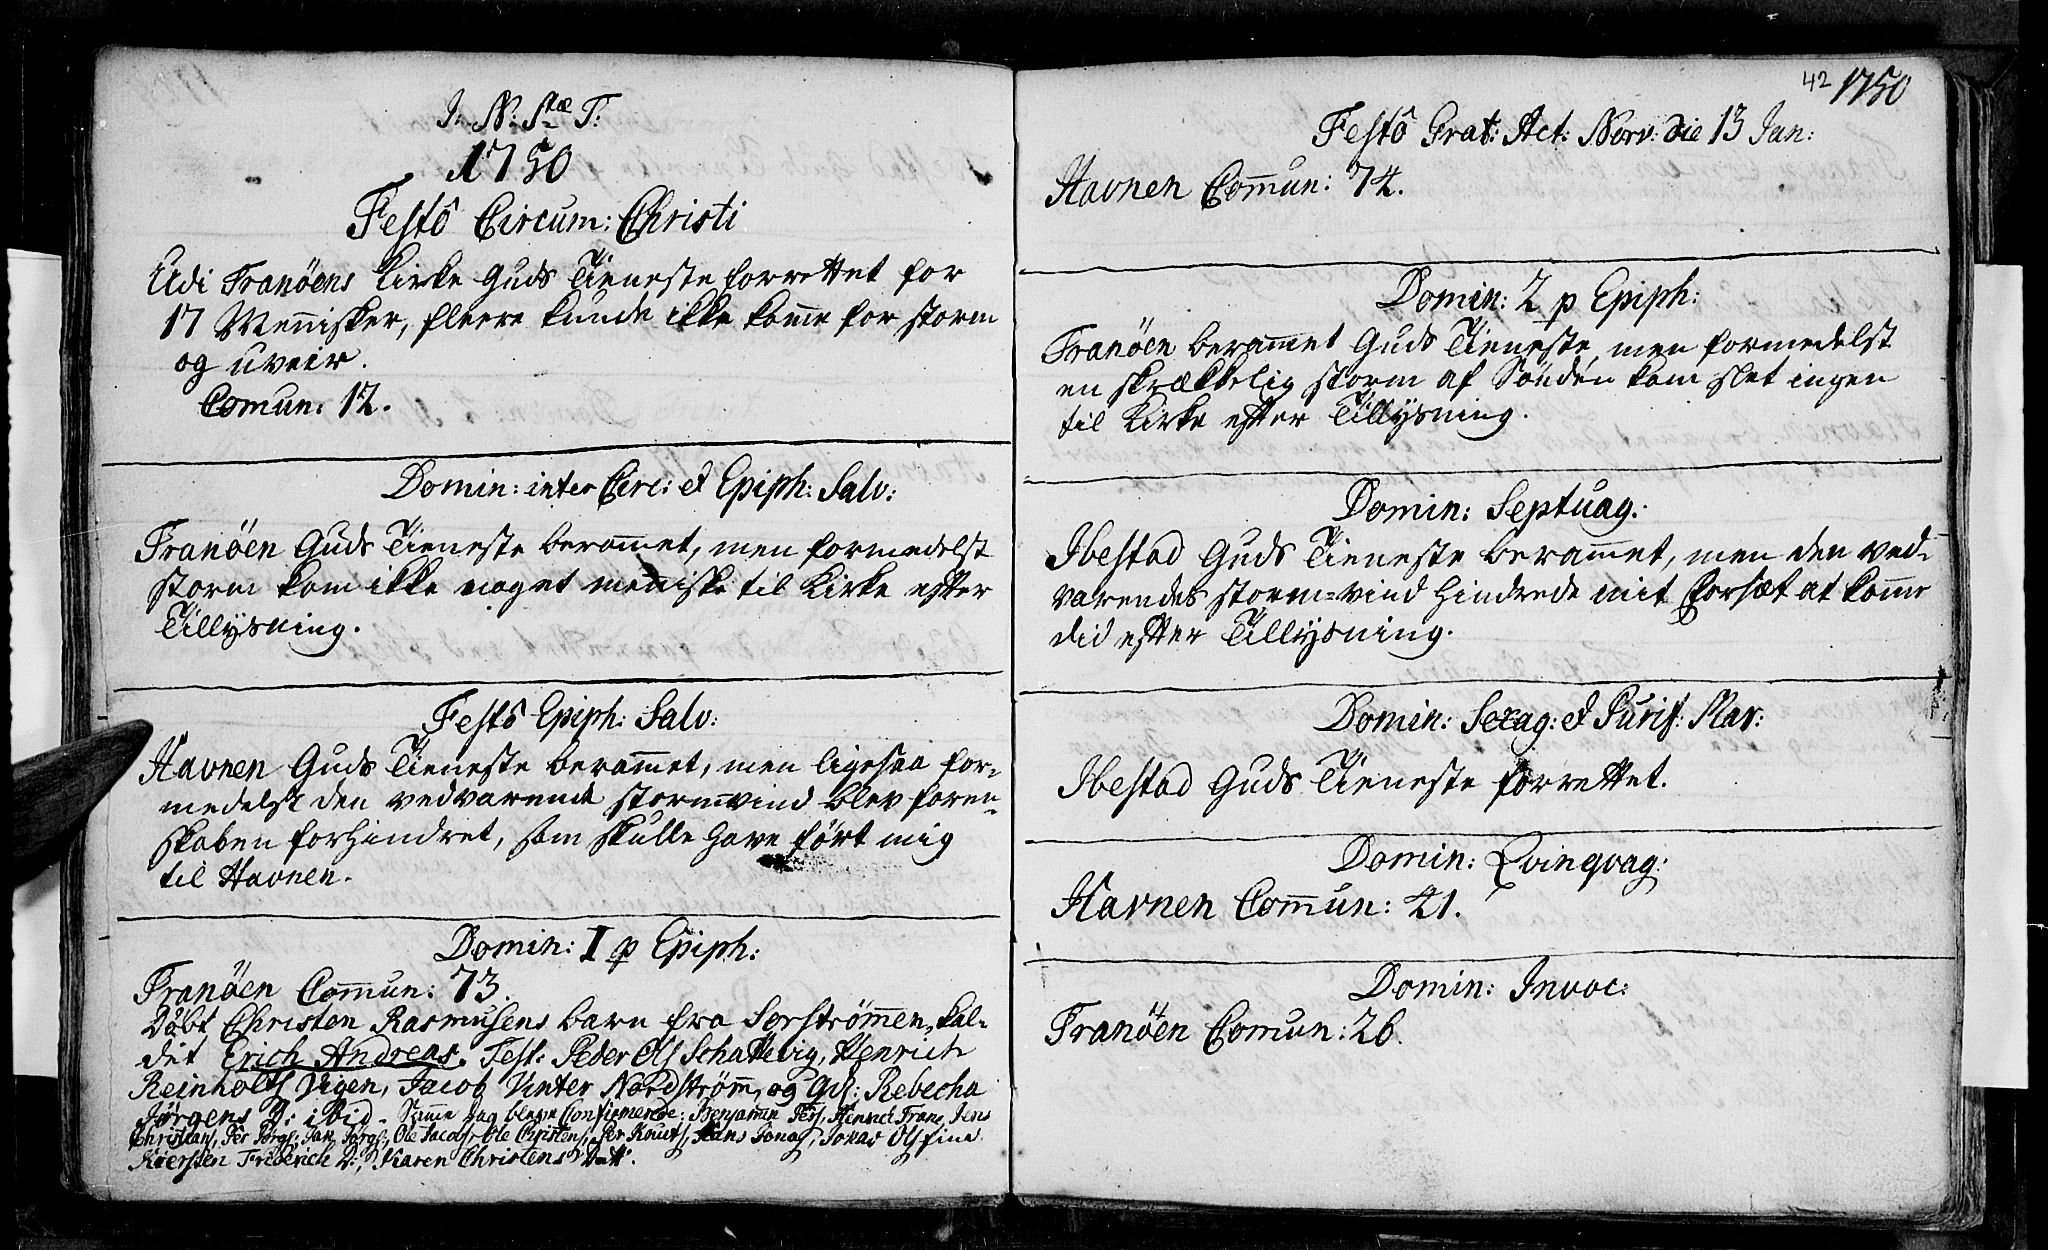 J: N: Stæ T:
1750
Festô Circum: Christi
Udi Tranöens Kirke Guds Tieneste forrettet for
17 Mennisker, fleere kunde ikke komme for storm
og uveir.
Comun: 12.
Domin: inter Circ: et Epiph: Salv:
Tranöen Guds Tieneste berammet, men formedelst
storm kom ikke noget meniske til Kirke efter
Tillysning.
Festô Epiph: Salv:
Havnen Guds Tieneste berammet, men ligesaa for-
medelst den vedvarende stormvind blev foren-
skaben forhindret, som skulle have ført mig
til Havnen.
Domin: I p Epiph:
Tranöen Commun: 73.
Døbt Christen Rasmusens barn fra Sorströmmen, kal-
det Erich Andreas. Test: Peder Ols Schattevig, Henrich
Reinholts Vigen, Jacob Vinter Nordström, og Gvl: Rebecha
Jørgens D: ibid. Samme dag bleve Confirmerede: Benjamin Pers, Henrich Frans, Jens
Christians, Per Jörgs, Jan Jörgs, Ole Jacobs, Ole Christens, Per Knuts, Hans Jonas, Jonas Ols
Friderich D:, Karen Christens Datt.
42 1750
Festô Grat: Act: Norv: die 13 Jan:
Havnen Commun: 74.
Domin: 2 p Epiph:
Tranöen berammet Guds Tieneste, men formedelst
en skrækkelig storm af Sönden kom slet ingen
til Kirke efter Tillysning.
Domin: Septuag:
Ibestad Guds Tieneste berammet, men den ved-
varendes storm=vind hindrede mit Forsæt at komme
did efter Tillysning.
Domin: Sexag: et Purif: Mar:
Ibestad Guds Tieneste forrettet.
Domin: Qvinqvag:
Havnen Commun: 41.
Domin: Invoc:
Tranöen Comun: 26.